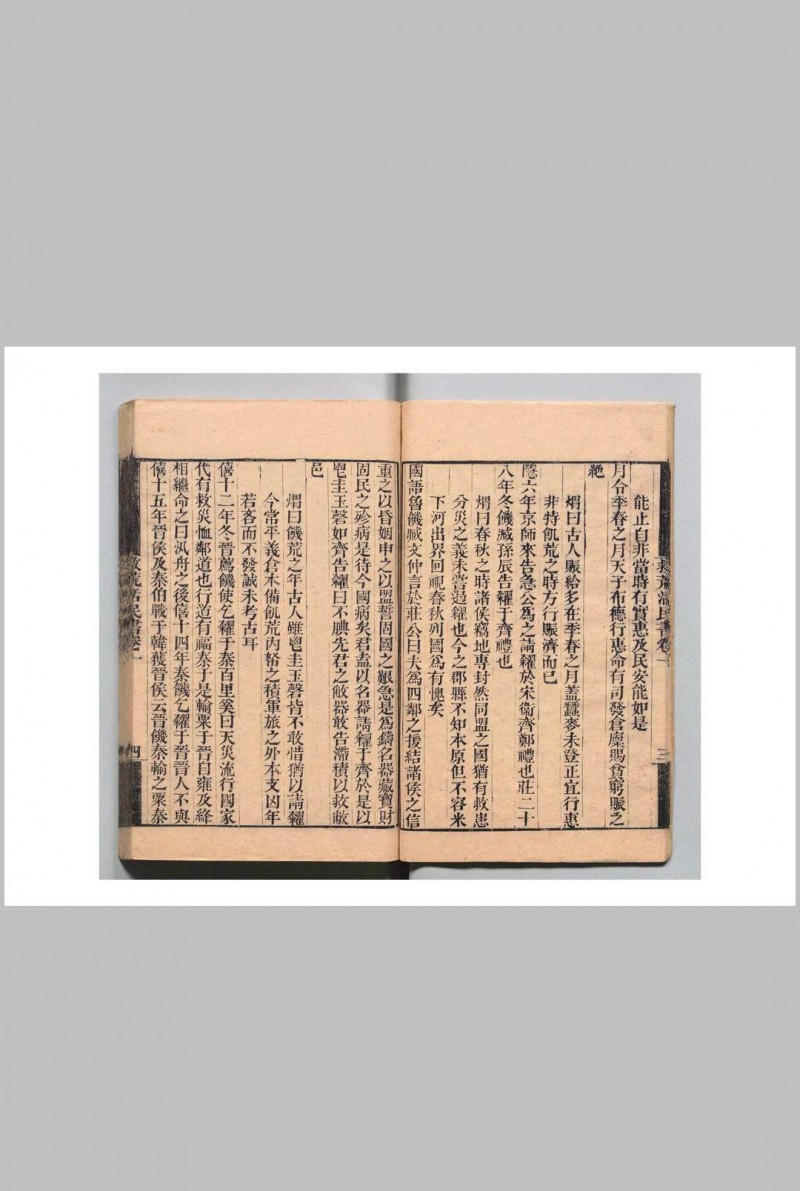 能止自非當時有實惠及民安能如是
月令季春之月天子布德行惠命有司發倉廩賜貧窮賑乏
絶
煟曰古人賑給多在季春之月蓋蠶麥未登正宜行惠
非特飢荒之時方行賑濟而已
隱六年京師來告急公爲之請糴於宋衞齊鄭禮也莊二十
八年冬饑臧孫辰告糴于齊禮也
煟曰春秋之時諸侯竊地專封然同盟之國猶有救患
分災之義未嘗遏糴也今之郡縣不知本原但不容米
下河出界回視春秋列國爲有愧矣
國語魯饑臧文仲言於莊公曰夫爲四鄰之援結諸侯之信
重之以昏姻申之以盟誓固國之艱急是爲鑄名器藏寶財
固民之殄病是待今國病矣君盍以名器請糴于齊於是以
鬯圭玉磬如齊告糴曰不腆先君之敝器敢告滯積以救敝
邑
煟曰饑荒之年古人雖鬯圭玉磬皆不敢惜猶以請糴
今常平義倉本備飢荒內帑之積軍旅之外本支凶年
若吝而不發誠未考古耳
僖十三年冬晉薦饑使乞糴于秦百里奚曰天災流行國家
代有救災恤鄰道也行道有福秦于是輸粟于晉自雍及絳
相繼命之曰汎舟之後僖十四年秦饑乞糴于晉晉人不與
僖十五年晉侯及秦伯戰于韓獲晉侯云晉饑秦輸之粟秦
救荒活民書卷一
三
救荒活民書卷一
四